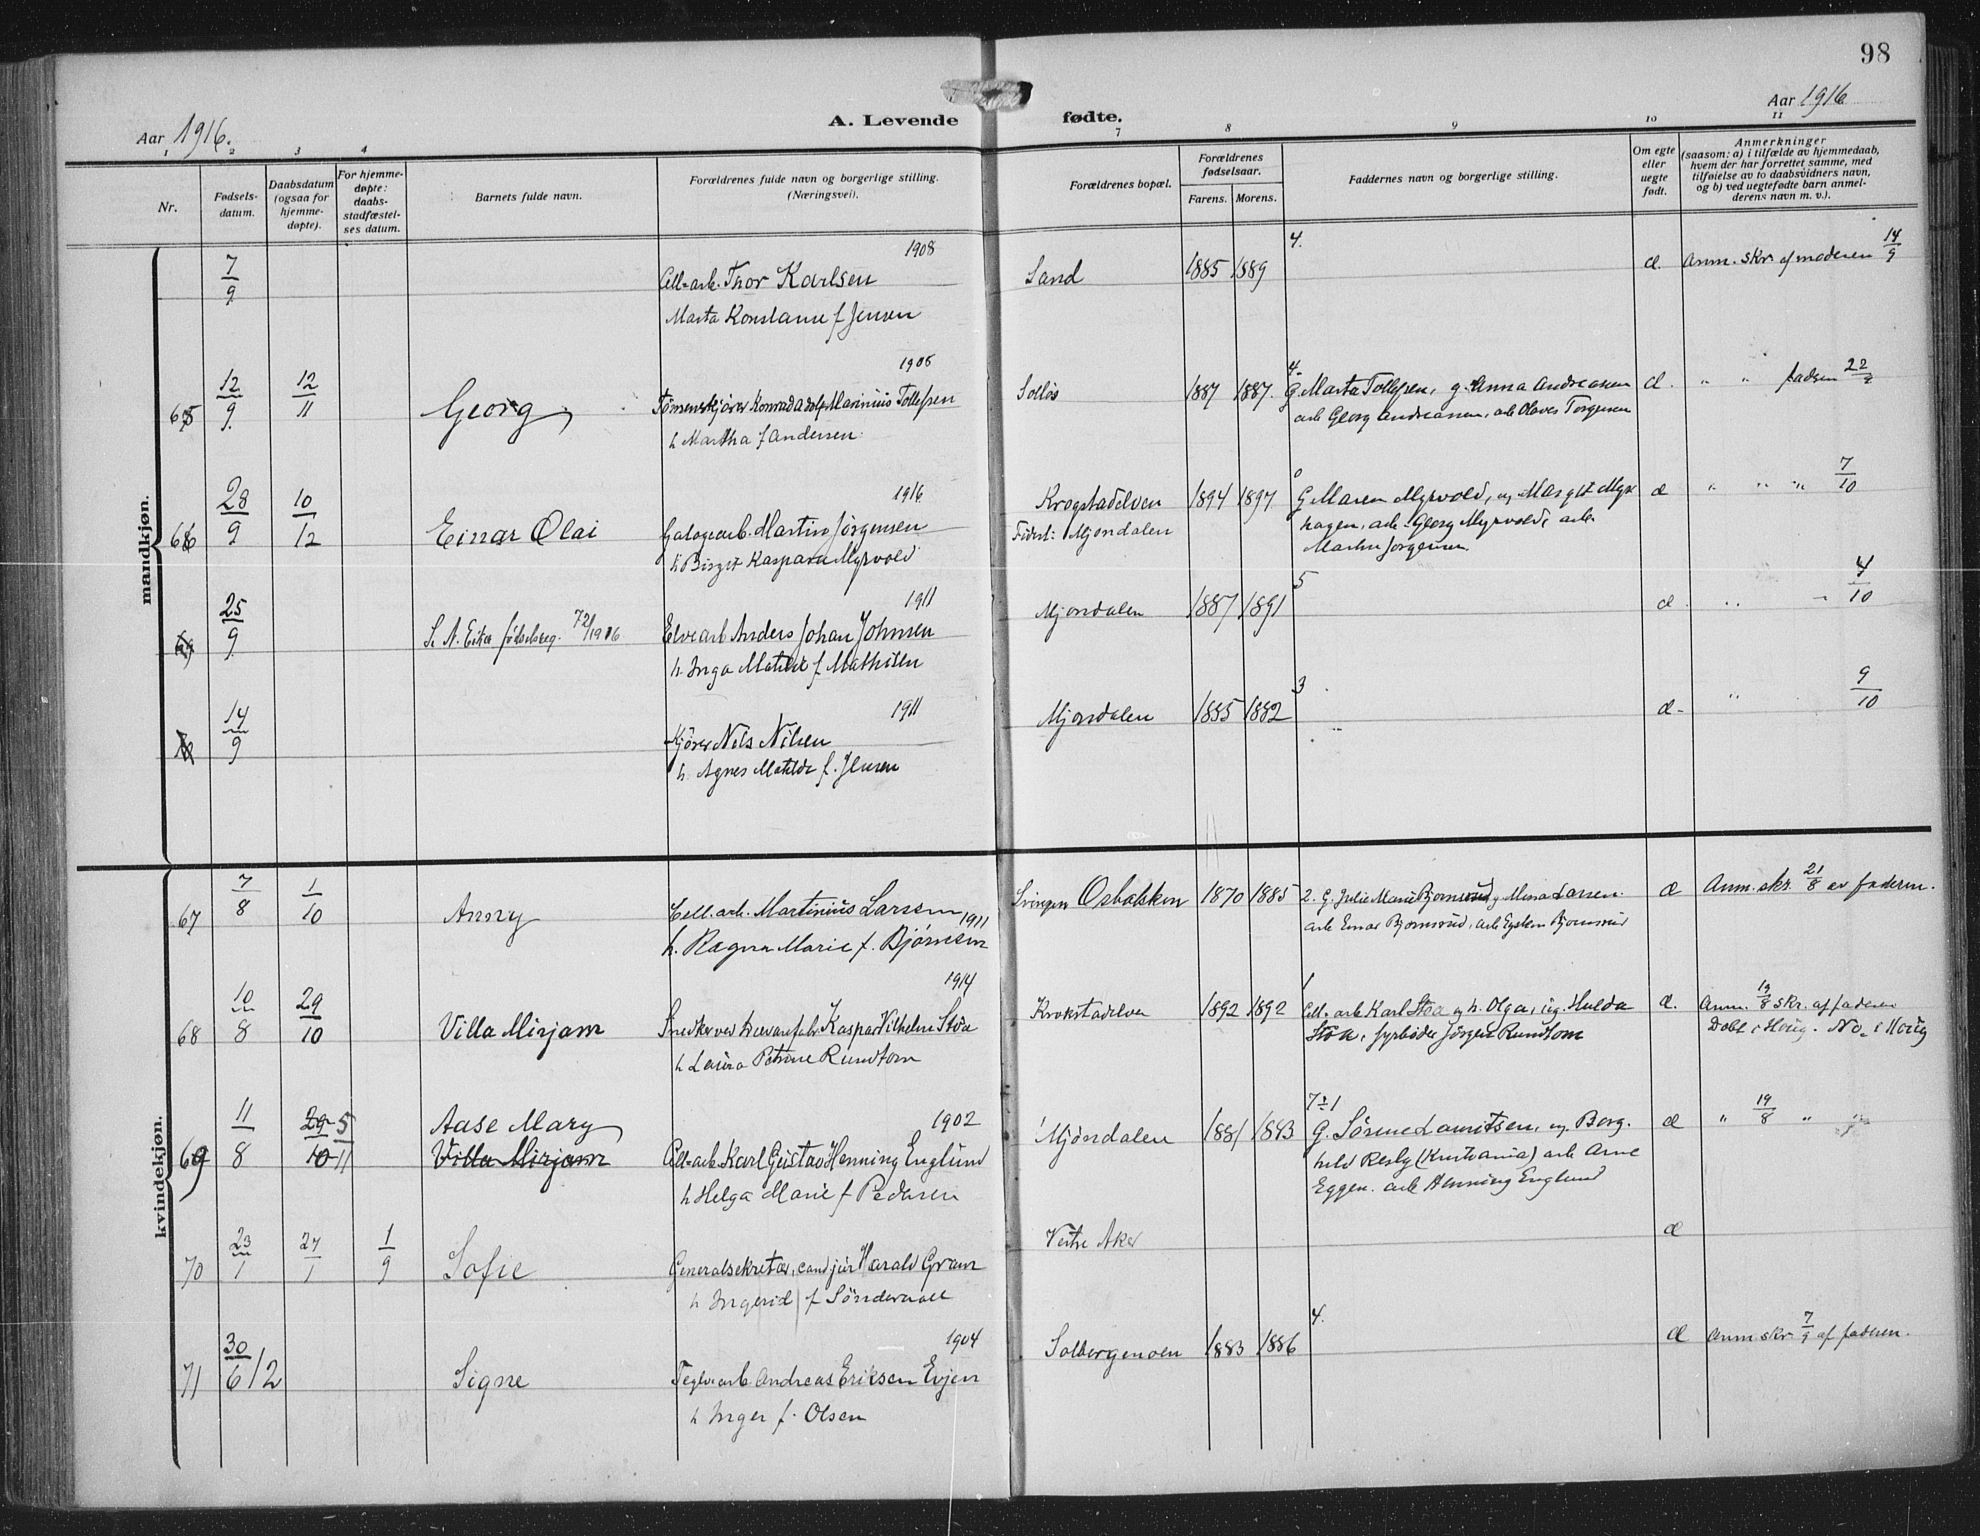 98
Aar 1916.
A. Levende fødte.
Aar 1916
1 2 3 4 7 8 9 10 11
Nr.
Fødsels-
datum.
Daabsdatum
(ogsaa for
hjemme-
døpte).
For hjemme-
døpte:
daabs-
stadfæstel-
ses datum.
Barnets fulde navn.
Forældrenes fulde navn og borgerlige stilling.
(Næringsvei).
Forældrenes bopæl.
Forældrenes
fødselsaar.
Farens. Morens.
Faddernes navn og borgerlige stilling.
Om egte
eller
uegte
født.
Anmerkninger
(saasom: a) i tilfælde av hjemmedaab,
hvem der har forrettet samme, med
tilføielse av to daabsvidners navn,
og b) ved uegtefødte barn anmel-
derens navn m. v.).
mandkjøn.
7/9
1908
Cell-arb. Thor Karlsen
Marta Konstanse f Jensen
Sand 1885 1889
4.
æ. Anm. skr. af moderen 14/9
65 12/9 12/11 Georg
1906
Tömmerkjörer Konrad Adolf Marinius Tollefsen
h Martha f Andersen
Solløs 1887 1887.
4.
G. Marta Tollefsen, g. Anna Andreasen
arb Georg Andreassen, arb Olaves Torgersen
æ. " " faderen
66 28/9 10/12 Einar Olai
1916
Galogearb. Martin Jörgensen
h Birgit Kaspara Myrvold
Krogstadelven
Fidert: Mjöndalen
1894 1897
0
G Maren Myrvold, ug Margit Myr
hagen, arb. Georg Myrvold, arb.
Martin Jorgensen.
æ " " " 7/10
25/9
Se N. Eiker fødselsreg. 72/1916
1911
Elvearb Anders Johan Johnsen
h. Inga Matilde f. Mathisen
Mjondalen 1887 1891
5
æ " " 4/10
14/9
1911
Kjörer Nils Nilsen
h. Agnes Matilde f. Jensen
Mjondalen 1885 1882
3
æ- " 9/10
kvindekjøn.
67 7/8 1/10 Anny
Cell. arb. Martinius Larsen 1911
h. Ragna Marie f. Bjørnsen
Svingen Osbakken 1870 1885
2. G. Julie Marie Bjornsrud, g Mina Larsen
arb Einar Bjornsrud, arb Eystein Bjornsrud
æ Anm. skr. 21/8 av faderen.
68 10/8 29/10 Villa Mirjam
1914
Snedker ved trævarefabr. Kaspar Vilhelm Stöa
h Laura Petrine Rundtom
Krokstadelven 1892 1892
1
Cell-arb Karl Stöa og h. Olga, ug. Hulda
Stöa, fyrböder Jörgen Rundtom
æ. Anm. 19/8 skr. af faderen
Döbt i Houg. No. i Houg
69 11/8 29/10 5/11 Aase Mary
Villa Mirjam
1902
Cell-arb Karl Gustav Henning Englund
h Helga Marie f Pedersen
Mjöndalen 1881 1883
7 1
G. Sörine Lauritsen, ug Borg-
hild Resby (Kristiania) arb Arne
Eggen. arb Henning Englund
æ " 19/8 " "
70 23/1 27/1 1/9 Sofie
Generalsekretær, cand jur Harald Gram
h Ingerid f Sönderaall
Vestre Aker
æ
71 30/6 12 Signe
1904
Teglverkarb Andreas Eriksen Evjen
h Inger f. Olsen
Solbergmoen 1883 1886
4.
æ Anm skr. 7/9 af faderen.